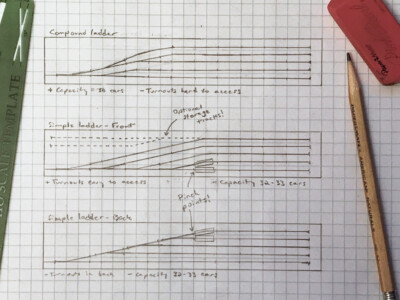 Compound ladder
+ Capacity = 38 cars - Turnouts hard to access
Optional
storage
tracks!
Simple ladder - Front
+ Turnouts easy to access - Capacity 32-33 cars
Pinch
points!
Simple ladder - Back
- Turnouts in back - Capacity 32-33 cars
HO SCALE TEMPLATE